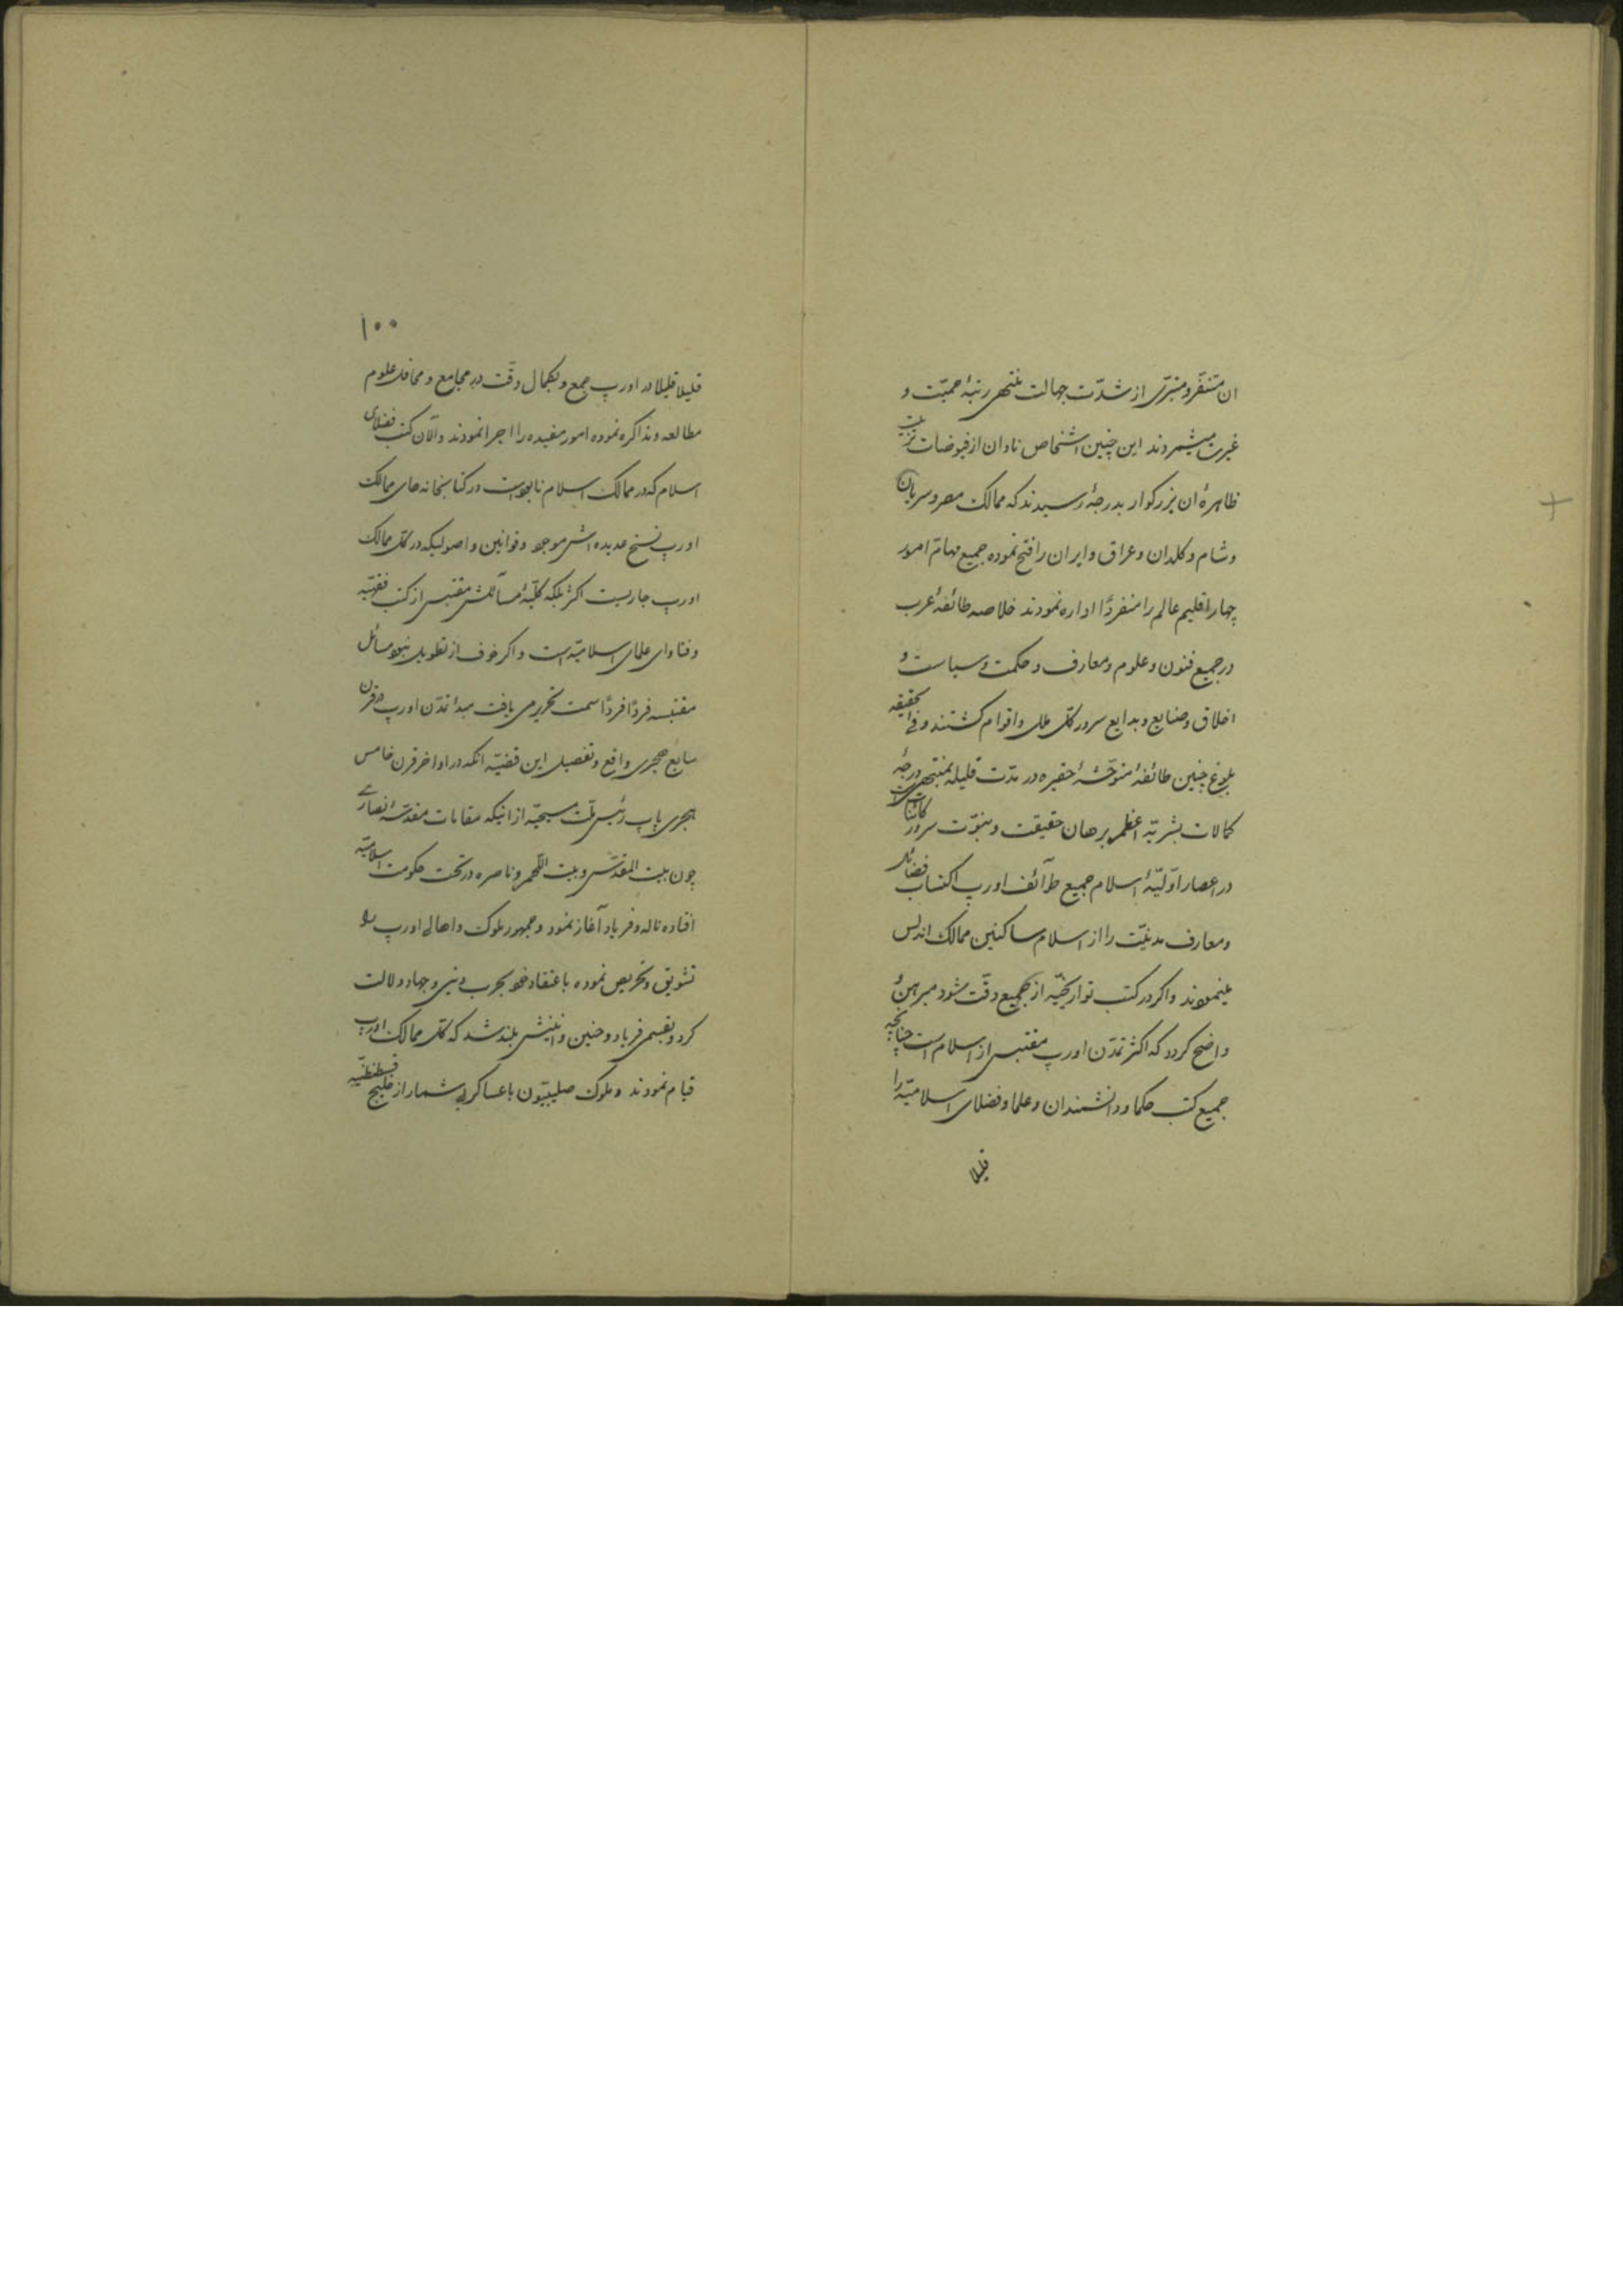 ان متنفر و متبرّی از شدّت جهالت منتهی رتبهٔ حمیّت و
غیرت میشمردند این چنین اشخاص نادان از فیوضات تربیت
ظاهرهٔ ان بزرکوار بدرجهٔ رسیدند که ممالک مصر و سریان
و شام و کلدان و عراق و ایران را فتح نموده جمیع مهامّ امور
چهار اقلیم عالم را منفردًا اداره نمودند خلاصه طائفهٔ عرب
در جمیع فنون و علوم و معارف و حکمت و سیاست و
اخلاق و صنایع و بدایع سرور کلّ ملل و اقوام کشتند و فی الحقیقه
بلوغ چنین طائفهٔ متوحّشهٔ حقیره در مدّت قلیله بمنتهی درجهٔ
کمالات بشریّه اعظم برهان حقیقت و نبوّت سرور کائنات است
در اعصار اوّلیّهٔ اسلام جمیع طوآئف اورپ اکتساب فضائل
و معارف مدنیّت را از اسلام ساکنین ممالک اندلس
مینمودند و اکر در کتب تواریخیّه از جمیع دقّت شود مبرهن و
واضح کردد که اکثر تمدّن اورپ مقتبس از اسلام است چنانچه
جمیع کتب حکما و دانشمندان و علما و فضلای اسلامیّه را
قلیلا
۱۰۰
قلیلا قلیلا در اورپ جمع و بکمال دقّت در مجامع و محافل علوم
مطالعه و مذاکره نموده امور مفیده را اجرا نمودند و الآن کتب فضلای
اسلام که در ممالک اسلام نابود است در کتابخانه های ممالک
اورپ نسخ عدیده اش موجود و قوانین و اصولیکه در کلّ ممالک
اورپ جاریست اکثر بلکه کلّیّهٔ مسآئلش مقتبس از کتب فقهیّه
و فتاوای علمای اسلامیّه است و اکر خوف از تطویل نبود مسائل
مقتبسه فردًا فردًا سمت تحریر می یافت مبدأ تمدّن اورپ در قرن
سابع هجری واقع و تفصیل این قضیّه انکه در اواخر قرن خامس
هجری پاپ رئیس ملّت مسیحیّه از اینکه مقامات مقدّسهٔ نصاری
چون بیت المقدّس و بیت اللّحم و ناصره در تحت حکومت اسلامیّه
افتاده ناله و فریاد آغاز نمود و جمهور ملوک و اهالی اورپ را
تشویق و تحریص نموده باعتقاد خود بحرب دینی و جهاد دلالت
کرد و بقسمی فریاد و حنین و انینش بلند شد که کلّ ممالک اورپ
قیام نمودند و ملوک صلیبیّون با عساکر بی شمار از خلیج قسطنطنیّه